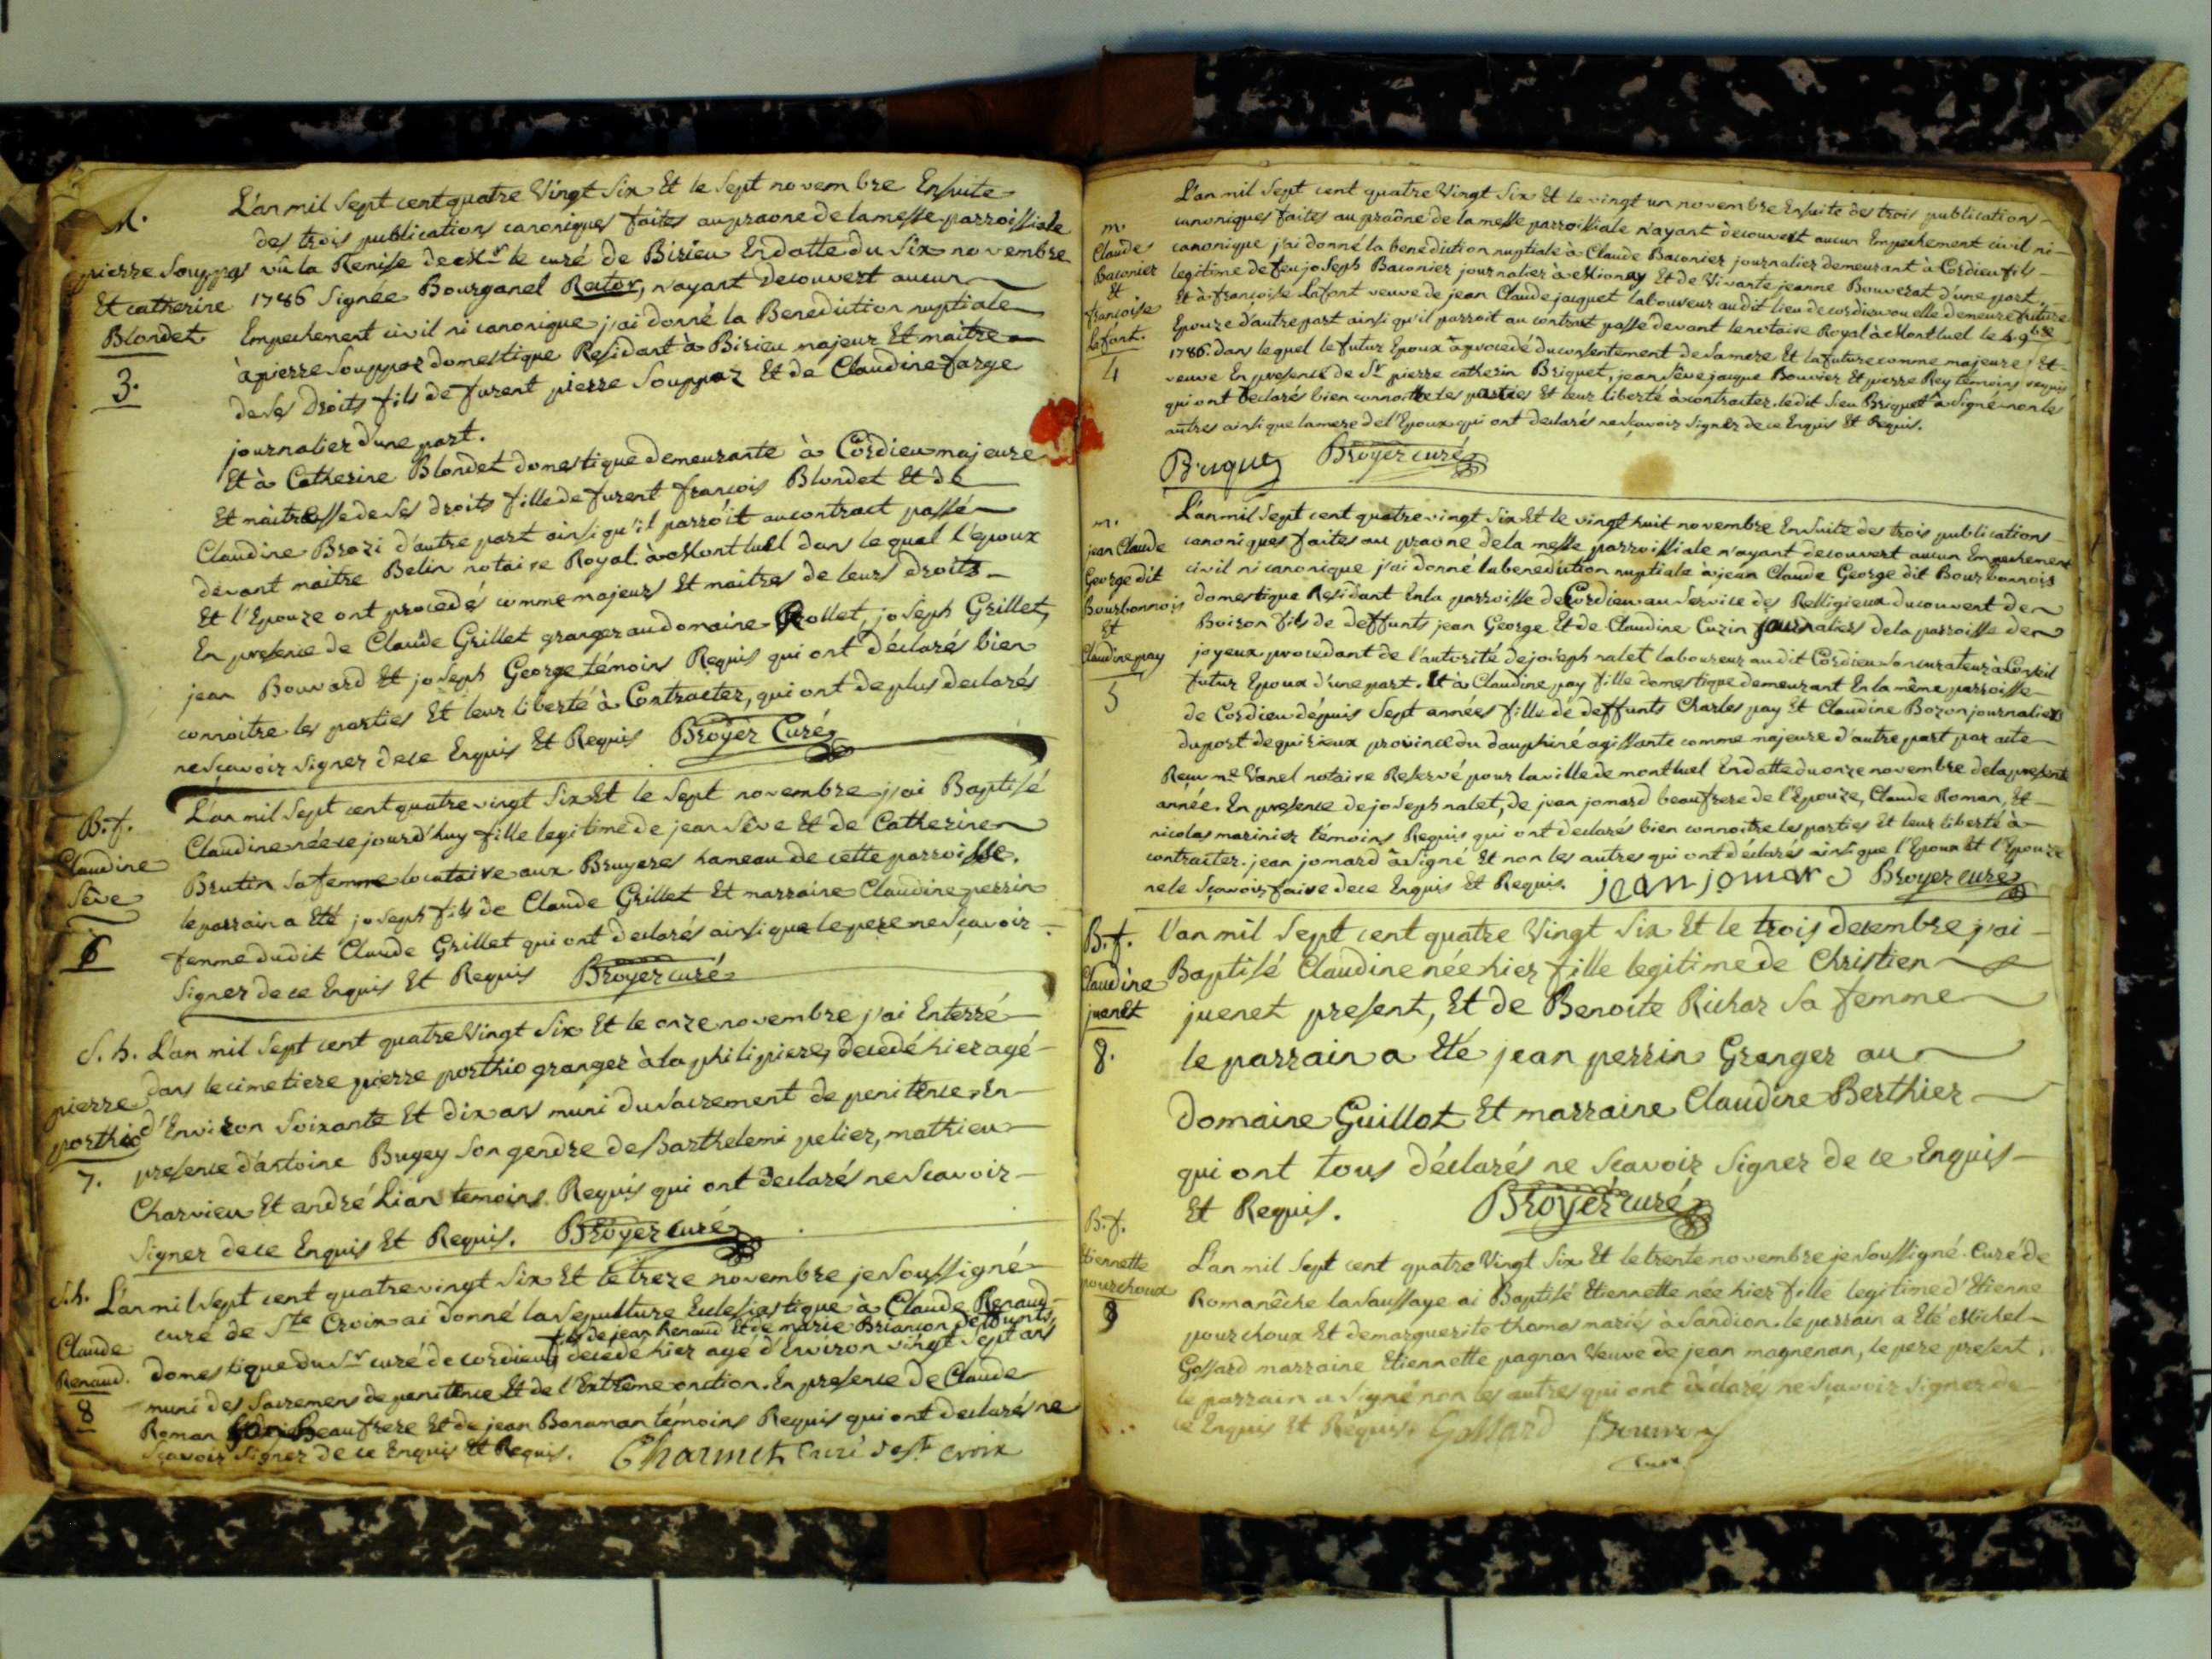 M.
pierre Souppaz
Et catherine
Blondet
3.
L'an mil Sept cent quatre Vingt Six Et le Sept novembre Ensuite
des trois publications canoniques faites au praone de la messe parroissiale
vû la Remise de Mr. le curé de Birieu En datte du Six novembre
1786 Signée Bourganel Rator, n'ayant decouvert aucun
Empechement civil ni canonique j'ai donné la Benediction nuptiale
à pierre Souppaz domestique Residant à Birieu majeur Et maitre
de Ses Droits fils de furent pierre Souppaz Et de Claudine farge
journalier d'une part.
Et à Catherine Blondet domestique demeurante à Cordieu majeure
Et maitresse de Ses droits fille de furent françois Blondet Et de
Claudine Brazi d'autre part ainsi qu'il parroit au contract passé
devant maitre Belin notaire Royal à Montluel dans le qual l'époux
Et l'Epouze ont procedés comme majeurs Et maitres de leurs droits
En presence de Claude Grillet granger au domaine Rollet, joseph Grillet,
jean Bouvard Et joseph George témoins Requis qui ont déclarés bien
connoitre les parties Et leur liberté à Contracter, qui ont de plus declarés
ne Scavoir Signer de ce Enquis Et Requis Broyer Curé
B. f.
Claudine
Sêve
6
L'an mil Sept cent quatre vingt Six Et le Sept novembre j'ai Baptisé
Claudine née ce jourd'huy fille legitime de jean Sêve Et de Catherine
Brutin Sa femme locataire aux Bruyeres hameau de cette parroisse.
le parrain a Eté joseph fils de Claude Grillet Et marraine Claudine perrin
femme dudit Claude Grillet qui ont declarés ainsi que le pere ne Sçavoir
Signer de ce Enquis Et Requis Broyer curé
S. h.
pierre
porthio
7.
L'an mil Sept cent quatre Vingt Six Et le onze novembre j'ai Enterré
dans le cimetiere pierre porthio granger à la philipiere, decedé hier agé
d'Environ Soixante Et dix ans muni du Sacrement de penitence. En
presence d'antoine Bugey Son gendre de Barthelemi pelier, mathieu
Charvieu Et andré Lian temoins Requis qui ont declarés ne Scavoir
Signer de ce Enquis Et Requis. Broyer curé
S. h.
Claude
Renaud.
8
L'an mil Sept cent quatre vingt Six Et le treze novembre je Soussigné
curé de Ste Croix ai donné la Sepulture Eclesiastique à Claude Renaud
fils de jean Renaud Et de marie Briancon deffunts
domestique du Sr curé de cordieu decedé hier agé d'Environ vingt Sept ans
muni des Sacremens de penitence Et de l'Extrême onction. En presence de Claude
Roman Beaufrere Et de jean Bonaman témoins Requis qui ont declarés ne
Scavoir Signer de ce Enquis Et Requis. Charmet Curé de St croix
m.
Claude
Baconier
Et
françoise
Lafont.
4
L'an mil Sept cent quatre Vingt Six Et le vingt un novembre Ensuite des trois publications
canoniques faites au praône de la messe parroissiale n'ayant decouvert aucun Empechement civil ni
canonique j'ai donné la benediction nuptiale à Claude Baconier journalier demeurant à Cordieu fils
legitime de feu joseph Baconier journalier à Mionay Et de Vivante jeanne Bouverat d'une part.
Et à françoise Lafont veuve de jean Claude jacquet laboureur au dit lieu de cordieu ou elle demeure future
Epouze d'autre part ainsi qu'il parroit au contrat passé devant le notaire Royal à Montluel le 4 9bre
1786. dans lequel le futur Epoux a procedé du consentement de Sa mere Et la future comme majeure Et
veuve En presence de Sr pierre catherin Briquet, jean Sêve jacque Bouvier Et pierre Rey témoins requis
qui ont declarés bien connoitre les parties Et leur liberté à contracter. ledit Sieu Briquet a Signé non les
autres ainsi que la mere de l'Epoux qui ont declarés ne Sçavoir Signer de ce Enquis Et Requis.
Briquet Broyer curé
m.
jean Claude
George dit
Bourbonnois
Et
Claudine pay
5
L'an mil Sept cent quatre vingt Six Et le vingt huit novembre Ensuite des trois publications
canoniques faites au praone de la messe parroissiale n'ayant decouvert aucun Empechement
civil ni canonique j'ai donné la benediction nuptiale à jean Claude George dit Bourbonnois
domestique Residant En la parroisse de Cordieu au Service des Relligieux du couvent de
Boison fils de deffunts jean George Et de Claudine Cuzin journaliers de la parroisse de
joyeux procedant de l'autorité de joseph nalet laboureur au dit Cordieu Son curateur à Conseil
futur Epoux d'une part. Et à Claudine pay fille domestique demeurant En la même parroisse
de Cordieu dépuis Sept années fille de deffunts Charles pay Et Claudine Bozon journaliers
du port de quirieux province du dauphiné agissante comme majeure d'autre part par acte
Reçu me Vanel notaire Reservé pour la ville de montluel En datte du onze novembre de la presente
année. En presence de joseph nalet, de jean jomard beaufrere de l'Epouze, Claude Roman, Et
nicolas marinier témoins Requis qui ont declarés bien connoitre les parties Et leur liberté à
contracter. jean jomard a Signé Et non les autres qui ont déclarés ainsi que l'Epoux Et l'Epouze
ne le Sçavoir faire de ce Enquis Et Requis. jean jomard Broyer curé
B. f.
Claudine
juenet
8.
l'an mil Sept cent quatre Vingt Six Et le trois decembre j'ai
Baptisé Claudine née hier fille legitime de Christien
juenet present, Et de Benoite Richar Sa femme
le parrain a Eté jean perrin Granger au
domaine Guillot Et marraine Claudine Berthier
qui ont tous déclarés ne Scavoir Signer de ce Enquis
Et Requis. Broyer curé
B. f.
Etiennette
pourchoux
9
L'an mil Sept cent quatre Vingt Six Et le trente novembre je Soussigné Curé de
Romanêche la Saussaye ai Baptisé Etiennette née hier fille legitime d'Etienne
pourchoux Et de marguerite thomas mariés à Sandion. le parrain a Eté Michel
Gossard marraine Etiennette pagnan Veuve de jean magnenan, le pere present,
le parrain a Signé non les autres qui ont déclarés ne Sçavoir Signer de
ce Enquis Et Requis. Gossard
curé